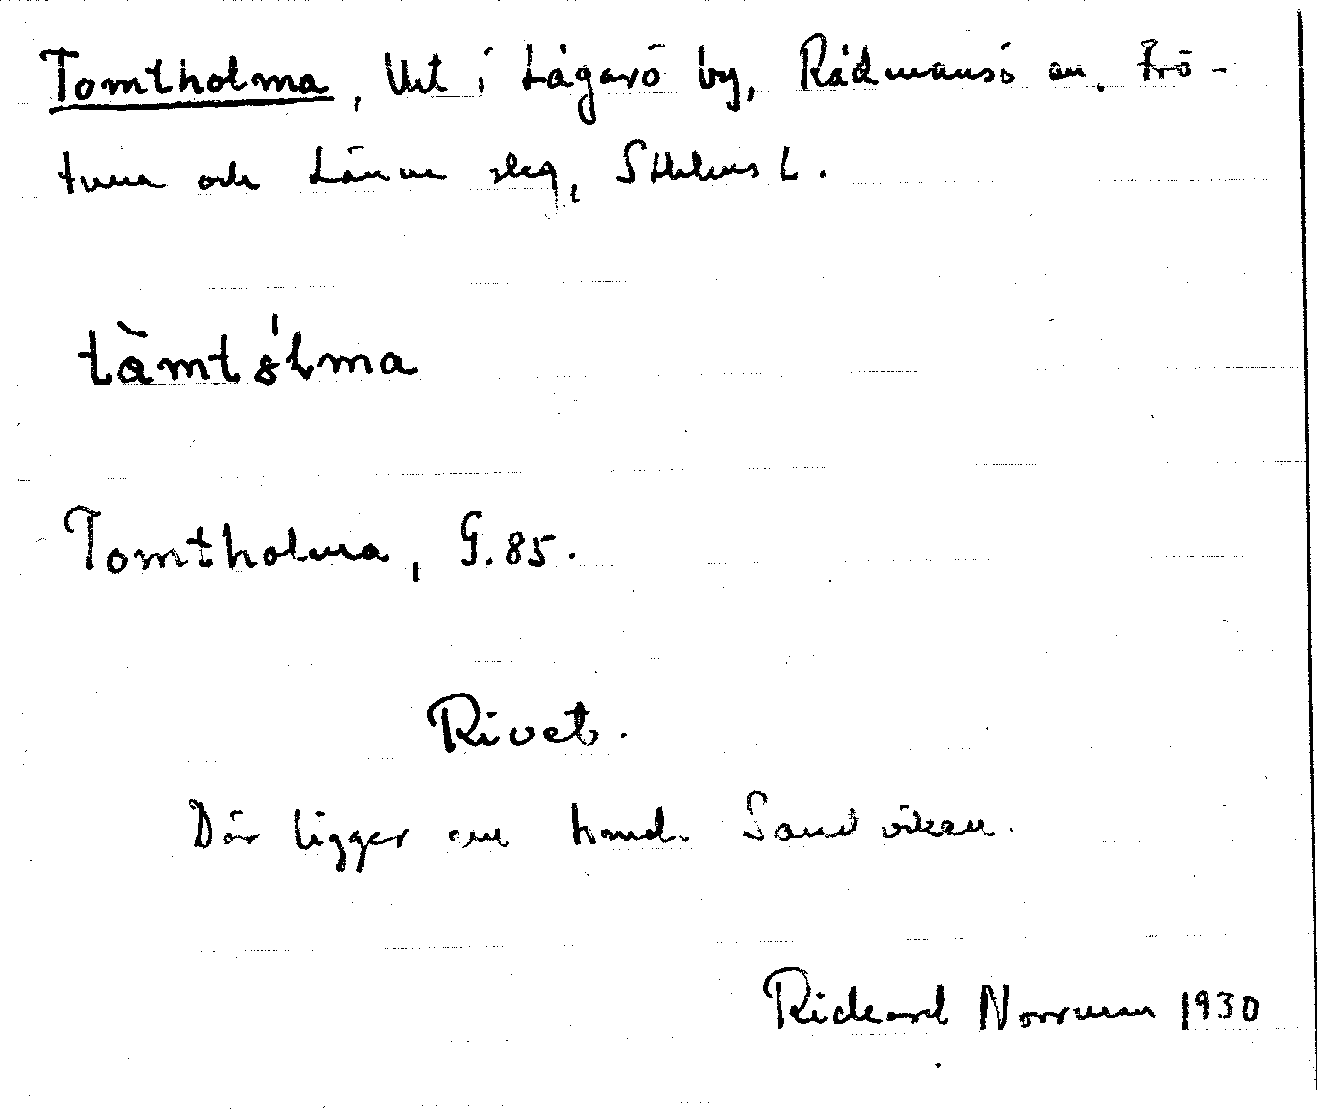 Tomtholma, Utt i Lågarö by, Rådmansö an. Frö-
tuna och Länna skg, Sthlms L.
tàmtólma
Tomtholma, G. 85.
Rivet.
Där ligger en hmd. Sandviken.
Rickard Norrman 1930